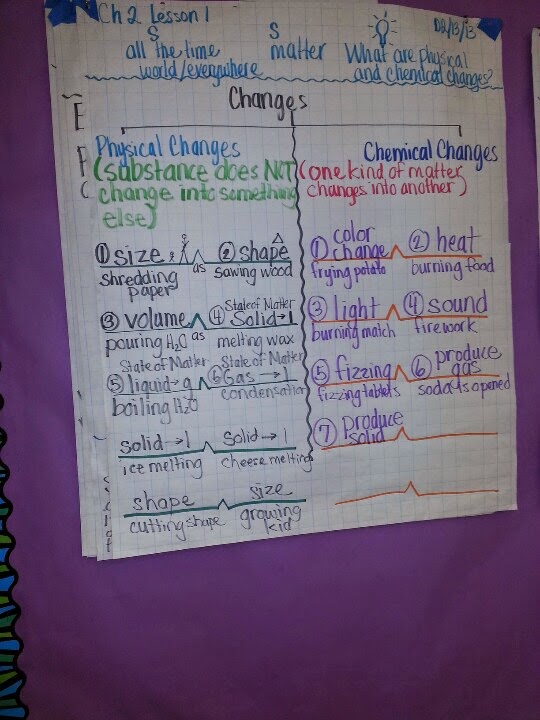 Ch 2 Lesson 1
02/13/13
S
all the time
world/everywhere
S
matter
What are physical
and chemical changes?
Changes
Physical Changes
(substance does NOT
change into something
else)
① size
shredding
paper
as
② shape
sawing wood
③ volume
pouring H₂O
as
State of Matter
④ Solid→l
melting wax
State of Matter
⑤ liquid→g
boiling H₂O
State of Matter
⑥ Gas→l
condensation
solid→l
ice melting
solid→l
cheese melting
shape
cutting shape
size
growing
kid
Chemical Changes
(one kind of matter
changes into another)
① color
change
frying potato
② heat
burning food
③ light
burning match
④ sound
firework
⑤ fizzing
fizzing tablets
⑥ produce
gas
soda is opened
⑦ Produce
solid